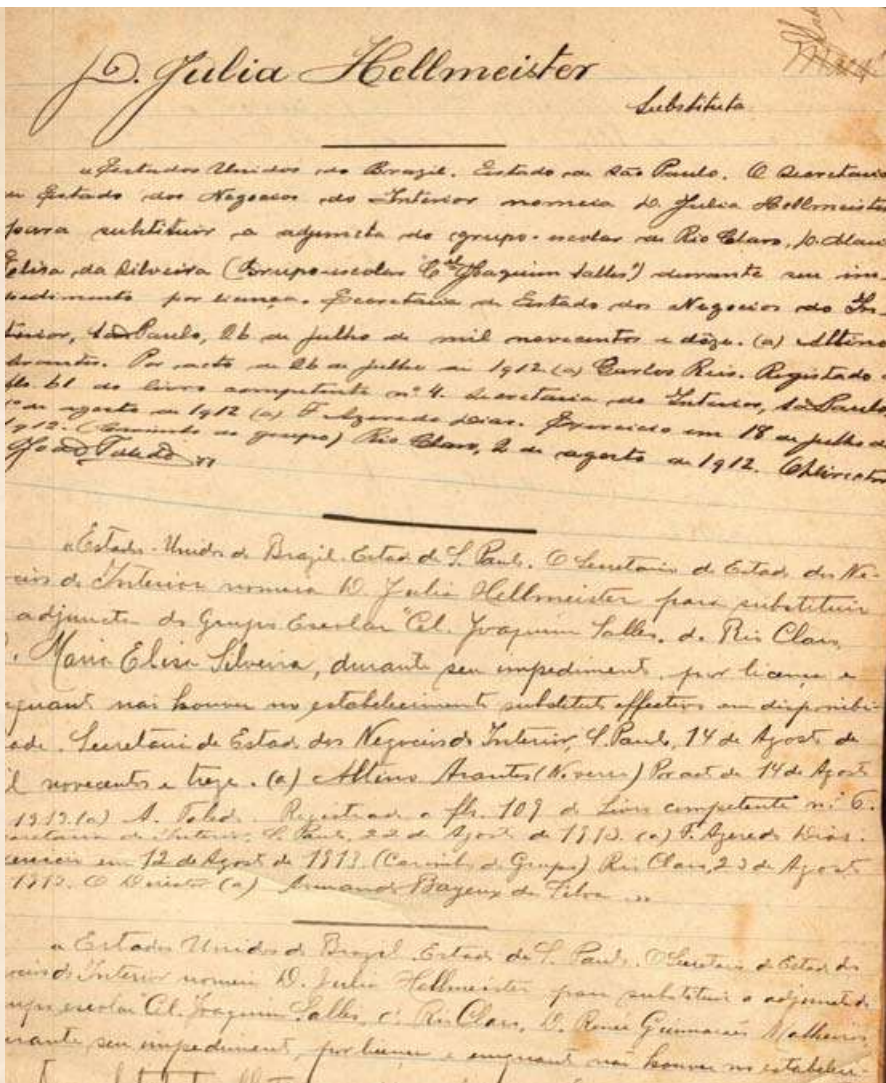 D. Julia Hellmeister
Substituta
"Estados Unidos do Brazil. Estado de São Paulo. O Secretario
de Estado dos Negocios do Interior nomeia D. Julia Hellmeister
para substituir a adjuncta do grupo-escolar de Rio Claro, D. Maria
Elisa da Silveira (Grupo-escolar "Cel. Joaquim Salles") durante seu im-
pedimento por licença. Secretaria de Estado dos Negocios do In-
terior, São Paulo, 26 de julho de mil novecentos e dôze. (a) Altino
Arantes. Por acto de 26 de julho de 1912 (a) Carlos Reis. Registado a
fls 61 do livro competente nº 4. Secretaria do Interior, São Paulo,
1º de agosto de 1912 (a) F. Azeredo Dias. Exercicio em 18 de julho de
1912. (Carimbo do grupo) Rio Claro, 2 de agosto de 1912. O Director
João Toledo"
"Estados-Unidos do Brazil. Estado de S. Paulo. O Secretario de Estado dos Ne-
gocios do Interior nomeia D. Julia Hellmeister para substituir
a adjuncta do Grupo Escolar "Cel. Joaquim Salles, de Rio Claro,
D. Maria Elisa Silveira, durante seu impedimento, por licença e
emquanto não houver no estabelecimento substituto effectivo em disponibili-
dade. Secretaria de Estado dos Negocios do Interior, S. Paulo, 14 de Agosto de
mil novecentos e treze. (a) Altino Arantes Por act. de 14 de Agosto
1913. (a) A. Toledo. Registrado a fls. 109 do Livro competente nº 6.
Secretaria do Interior, S. Paulo, 22 de Agosto de 1913. (a) F. Azeredo Dias.
Exercicio em 12 de Agosto de 1913. (Carimbo do Grupo) Rio Claro, 23 de Agosto
1913. O Director (a) Armando Bayeux da Silva"
"Estados Unidos do Brazil. Estado de S. Paulo. O Secretario de Estado dos
Negocios do Interior nomeia D. Julia Hellmeister para substituir a adjuncta do
Grupo escolar "Cel. Joaquim Salles, de Rio Claro, D. Renée Guimarães Malheiros
durante seu impedimento, por licença e emquanto não houver no estabeleci-